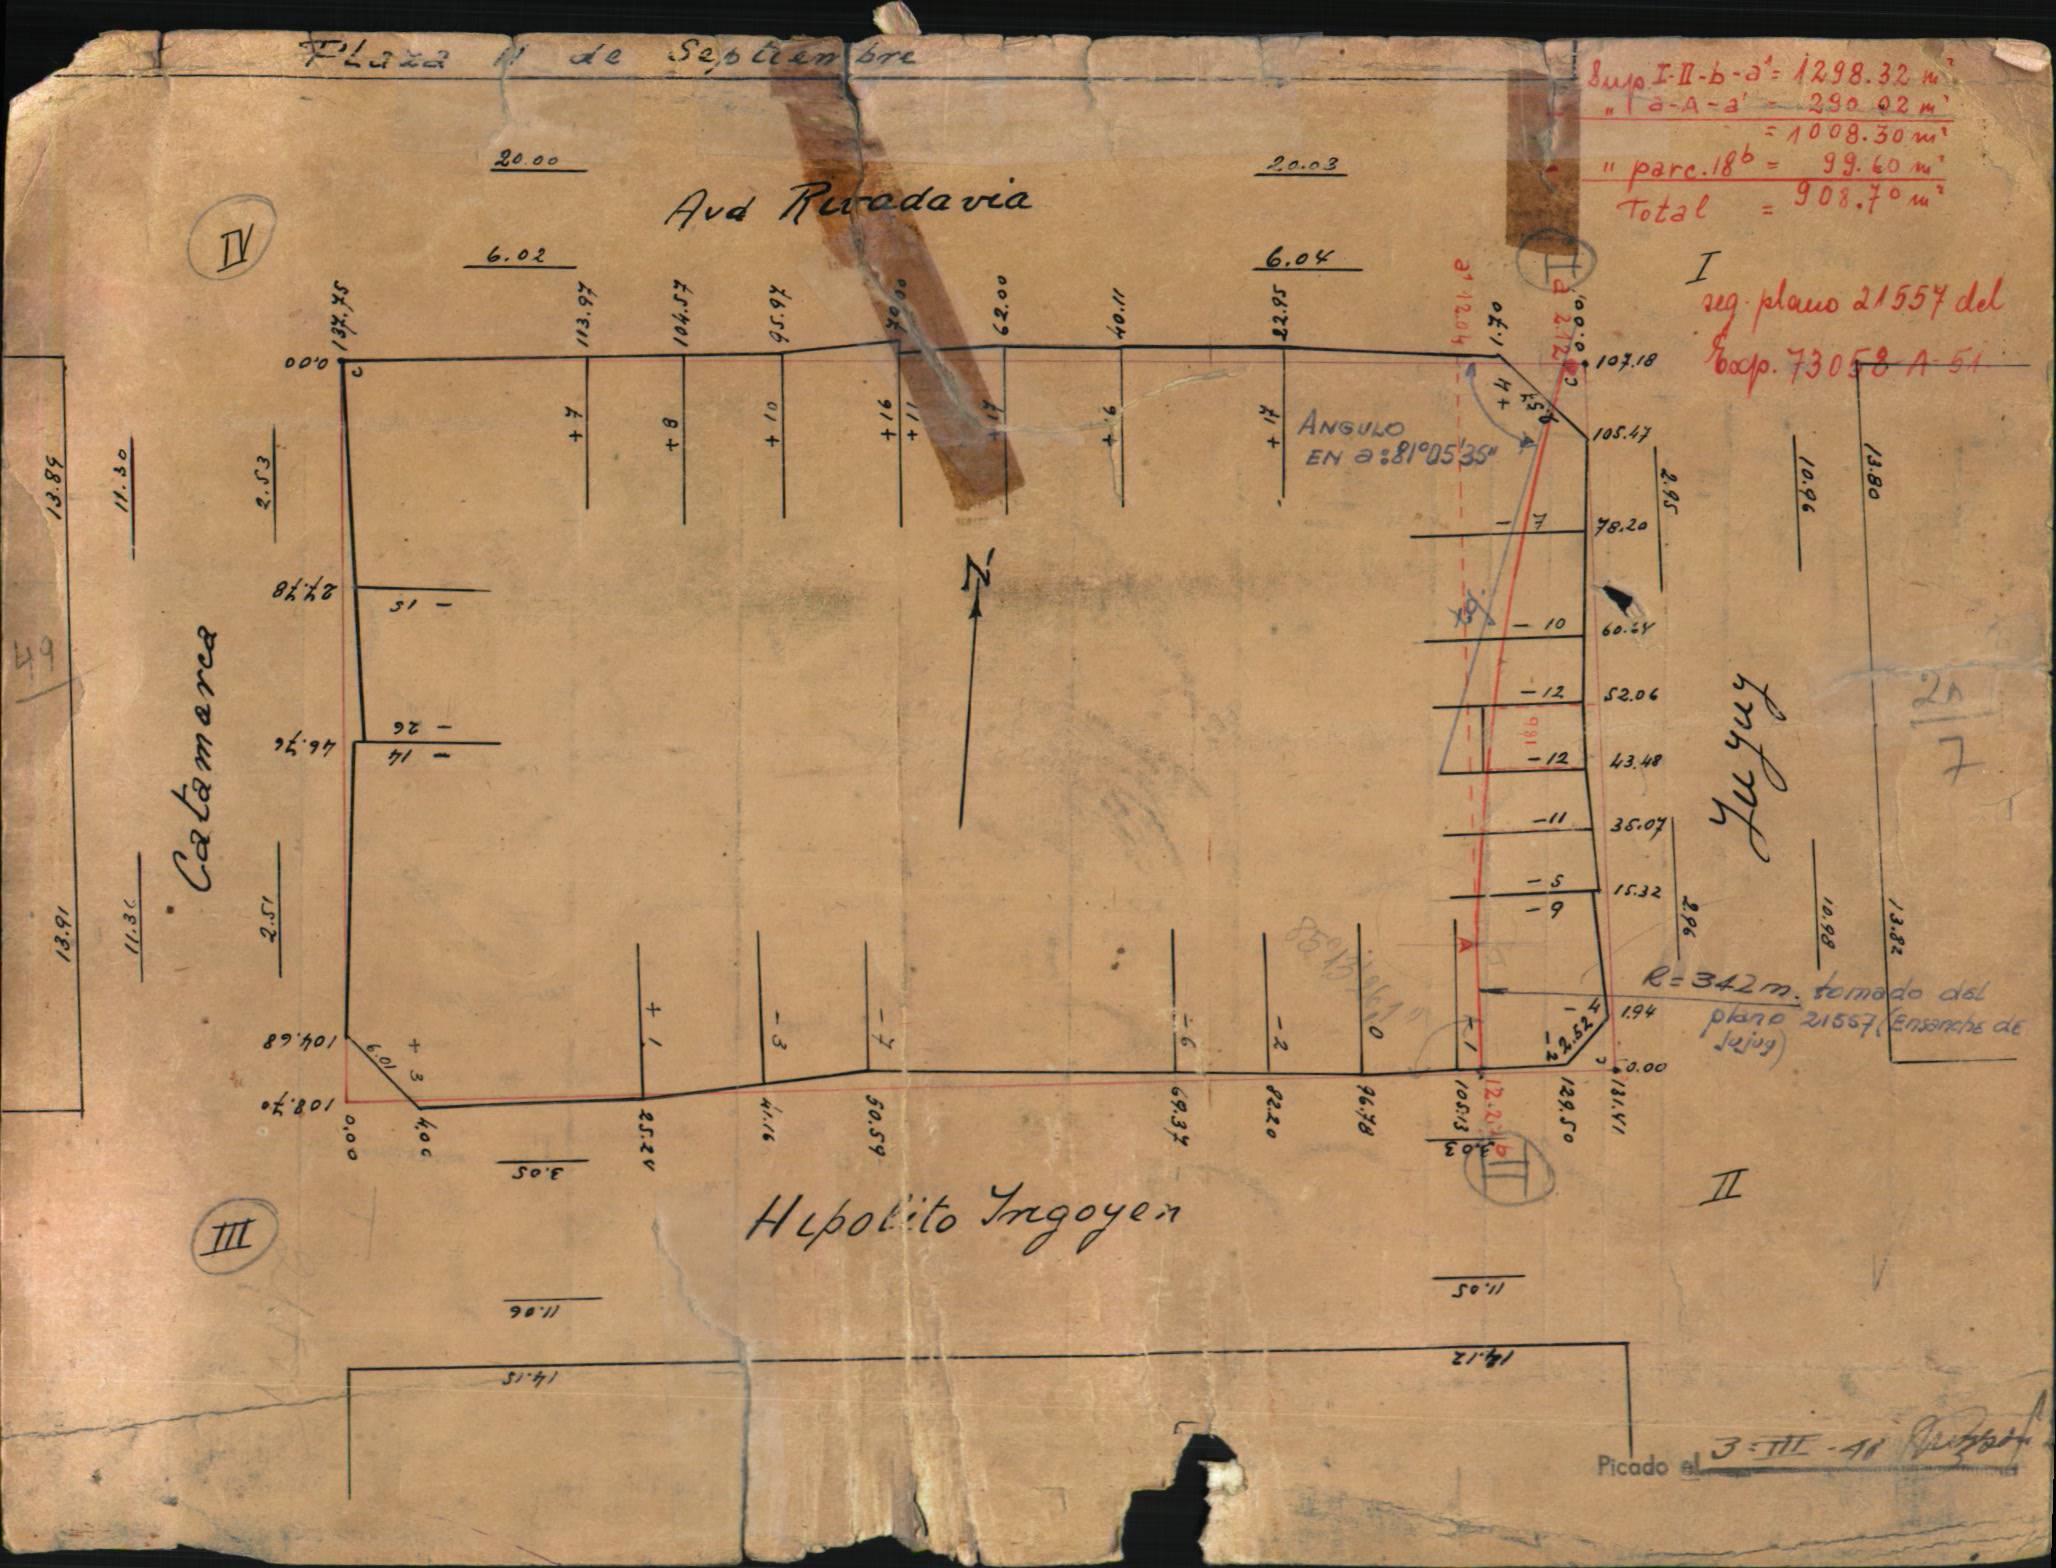 Plaza 11 de Septiembre
Sup. I-II-b-a' = 1298.32 m²
" a-A-a' = 290.02 m²
= 1008.30 m²
" parc. 18b = 99.60 m²
Total = 908.70 m²
20.00
20.03
Avd Rivadavia
IV
6.02
6.04
I
I
seg. plano 21557 del
Exp. 73058-A-51
137.75
113.97
104.57
95.97
70.00
62.00
40.11
22.95
a' 12.04
1.70
a 2.12
0.00
0.00
c
107.18
c
+7
+8
+10
+16
+11
+17
+9
+17
+4
105.47
ANGULO
EN a: 81°05'35"
13.89
11.30
2.53
2.95
10.96
13.80
-7
78.20
N
27.78
-15
-10
60.64
49
Catamarca
Yuyuy
-12
52.06
21
7
46.76
-26
-14
-12
43.48
-11
35.07
-5
15.32
-9
13.91
2.51
2.96
10.98
13.82
A
R=342 m. tomado del
plano 21557 (Ensanche de
Jujuy)
104.68
+3
+1
-3
-7
-6
-2
0
-1
-4
1.94
2.52
-2
c
0.00
108.70
0.00
4.06
25.24
41.16
50.59
69.37
82.20
96.78
105.13
b
129.50
131.41
3.05
3.03
II
II
III
Hipolito Irigoyen
11.06
11.05
14.15
14.12
Picado el 3-III-41